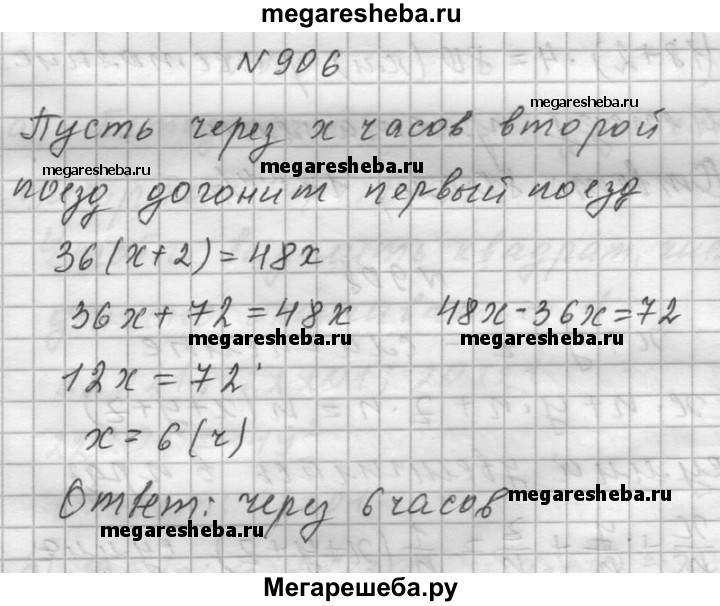 megaresheba.ru
N 906
megaresheba.ru
Пусть через x часов второй
megaresheba.ru megaresheba.ru
поезд догонит первый поезд
36(x+2)=48x
36x+72=48x 48x-36x=72
megaresheba.ru megaresheba.ru
12x=72
x=6(ч)
Ответ: через 6 часов
megaresheba.ru
megaresheba.ru
Мегарешеба.ру